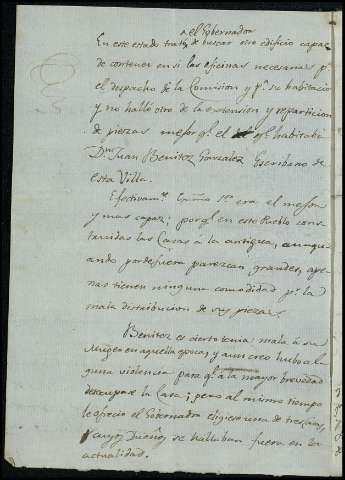 el Gobernador
En este estado trató de buscar otro edificio capaz
de contener en si las oficinas necesarias pª
el despacho de la Comision y pª su habitacion
y no halló otro de la extension y reparticion
de piezas mejor qº el qº habitaba
Dn Juan Benitez Gonzalez Escribano de
esta Villa.
Efectivamte era el mejor
y mas capaz; porqº en este Pueblo cons-
truidas las Casas à la antigua, aunqº
quando por defuera parezcan grandes, ape-
nas tienen ninguna comodidad pr la
mala distribucion de sus piezas.
Benitez es cierto tenia mala á su
Muger en aquella epoca, y aun creo hubo al-
guna violencia para qº á la mayor brevedad
desocupase la Casa; pero al mismo tiempo
le ofreció el Gobernador eligiese una de tres casas,
cuyos Dueños se hallaban fuera en la
actualidad.